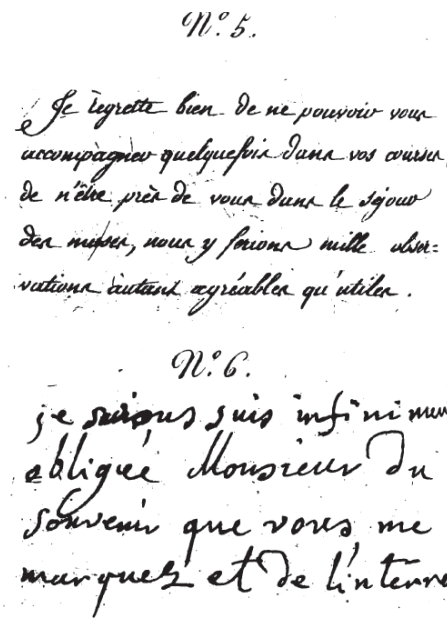 N.o 5.
Je regrette bien de ne pouvoir vous
accompagner quelquefois dans vos courses
de n'être près de vous dans le séjour
des muses, nous y ferions mille obser=
vations autant agréables qu'utiles.
N.o 6.
je suis infini
obligée Monsieur du
souvenir que vous me
marquez et de l'interre